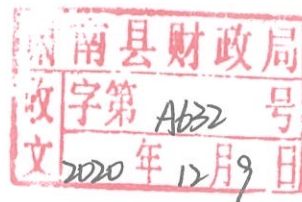 南县财政局
收字第 A632 号
文 2020 年 12 月 9 日